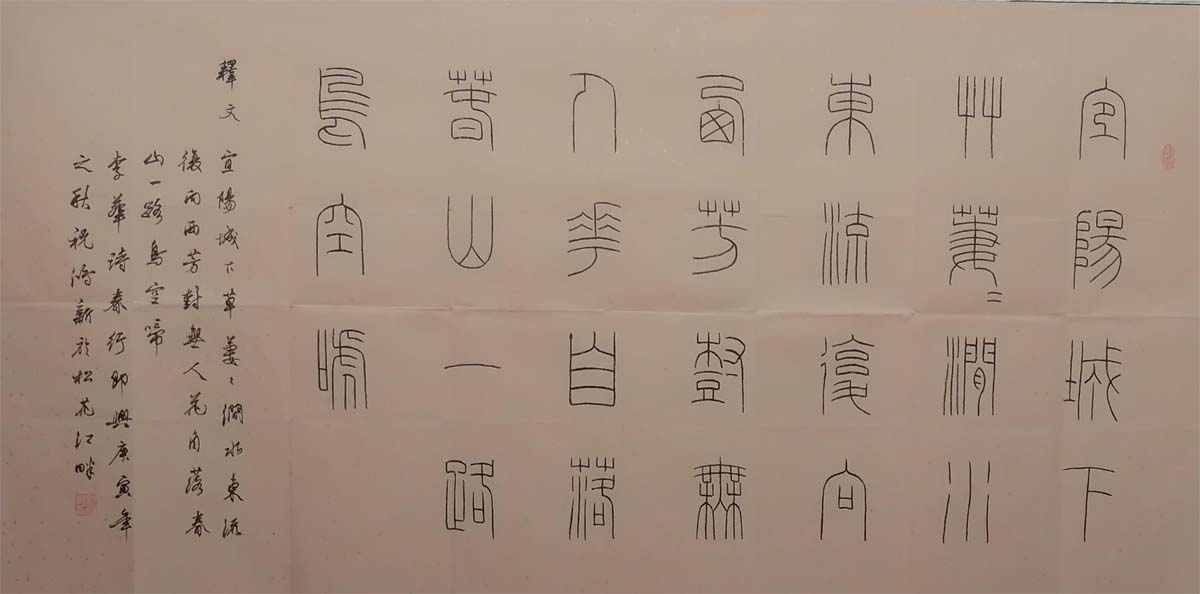 宜陽城下
艸萋〻澗水
東流復向
西芳樹無
人華自落
春山一路
鳥空嗁
釋文 宜陽城下草萋〻澗水東流
復向西芳對無人花自落春
山一路鳥空啼
李華詩春行即興庚寅年
之秋祝新於松花江畔